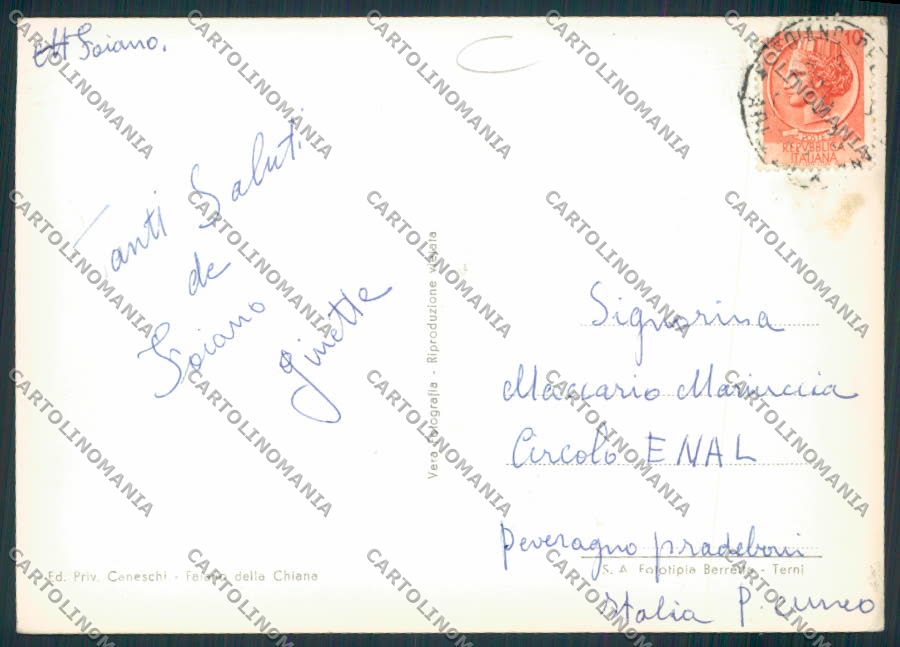 Foiano.
Tanti Saluti
de
Foiano
ginette
Vera Fotografia - Riproduzione vietata
10
POSTE
REPVBBLICA
ITALIANA
Signorina
Maccario Mariuccia
Circolo ENAL
Peveragno pradeboni
Italia P. cuneo
Ed. Priv. Ceneschi - Foiano della Chiana
S. A. Fototipia Berretta - Terni
CARTOLINOMANIA